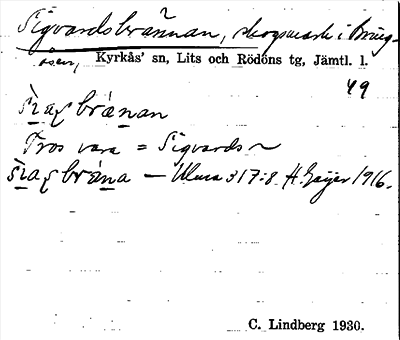 Sigvardsbrännan, skogsmark i Bring-
åsen, Kyrkås' sn, Lits och Rödöns tg, Jämtl. l.
49
bränan
Tros vara = Sigvards~
bräna — Ulma 317:8 H. Geijer 1916.
C. Lindberg 1930.